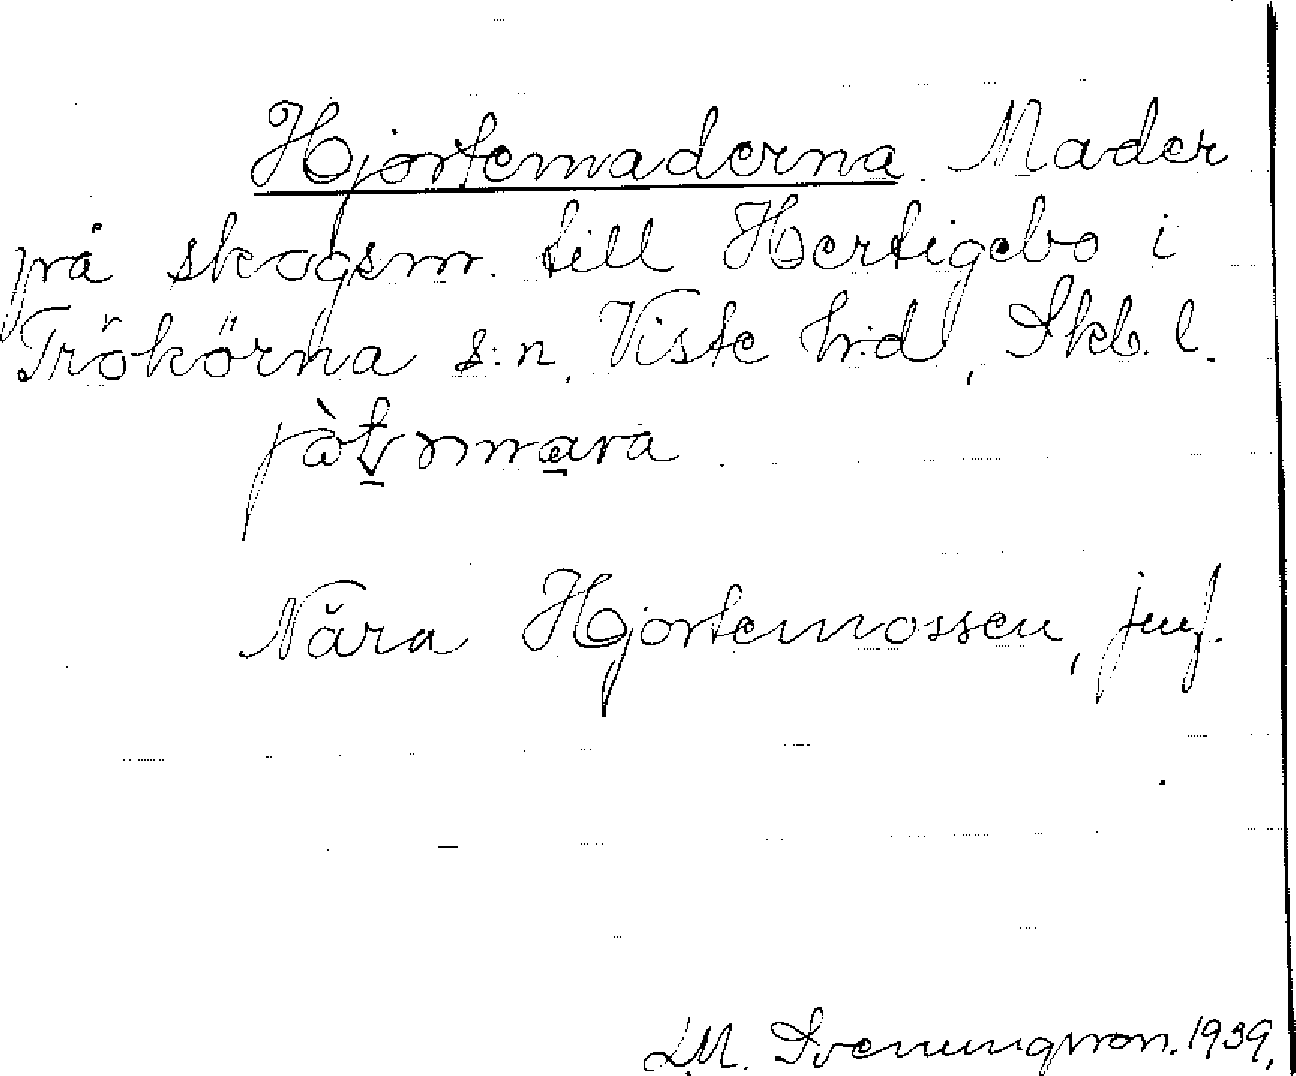 Hjortemaderna. Mader
på skogsm. till Hertigebo i
Trökörna s:n, Viste h:d, Skb. l.
Nära Hjortemossen, jmf.
L.M. Svenungsson. 1939.